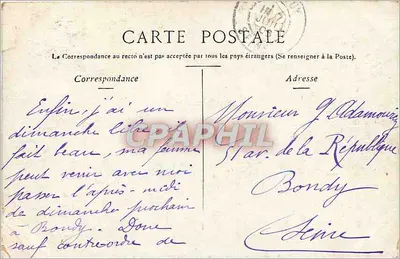 CARTE POSTALE
La Correspondance au recto n'est pas acceptée par tous les pays étrangers (Se renseigner à la Poste).
Correspondance
Adresse
Enfin, j'ai un
dimanche libre, il
fait beau, ma femme
peut venir avec moi
passer l'après-midi
de dimanche prochain
à Bondy. Donc
sauf contre-ordre de
Monsieur
51 av. de la République
Bondy
Seine
CPAPHIL